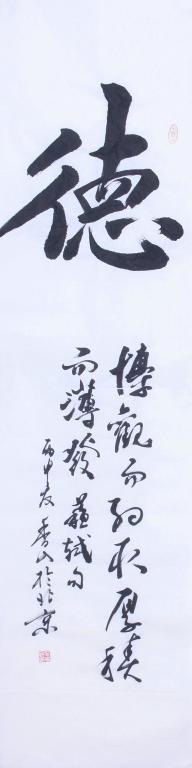 德
博觀而約取厚積
而薄發蘇軾句
丙申夏香山於北京